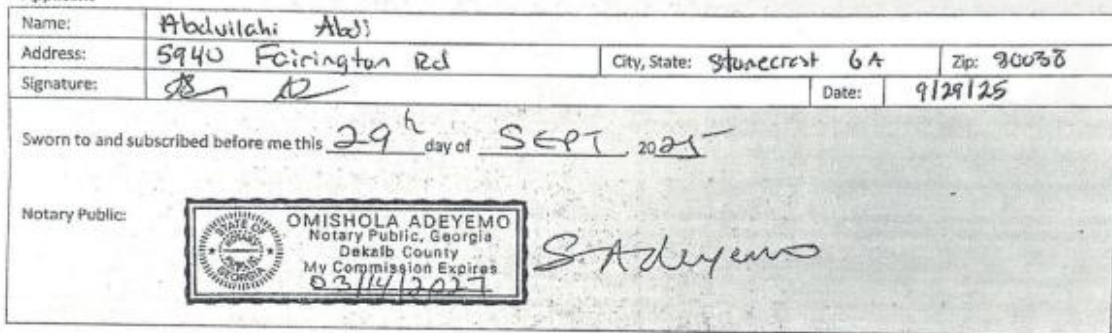 Name: Abdullahi Abdi
Address: 5940 Fairington Rd City, State: Stonecrest GA Zip: 30038
Signature: Date: 9/29/25
Sworn to and subscribed before me this 29th day of SEPT 2025
Notary Public:
STATE OF
GEORGIA
OMISHOLA ADEYEMO
Notary Public, Georgia
Dekalb County
My Commission Expires
03/14/2027
S. Adeyemo